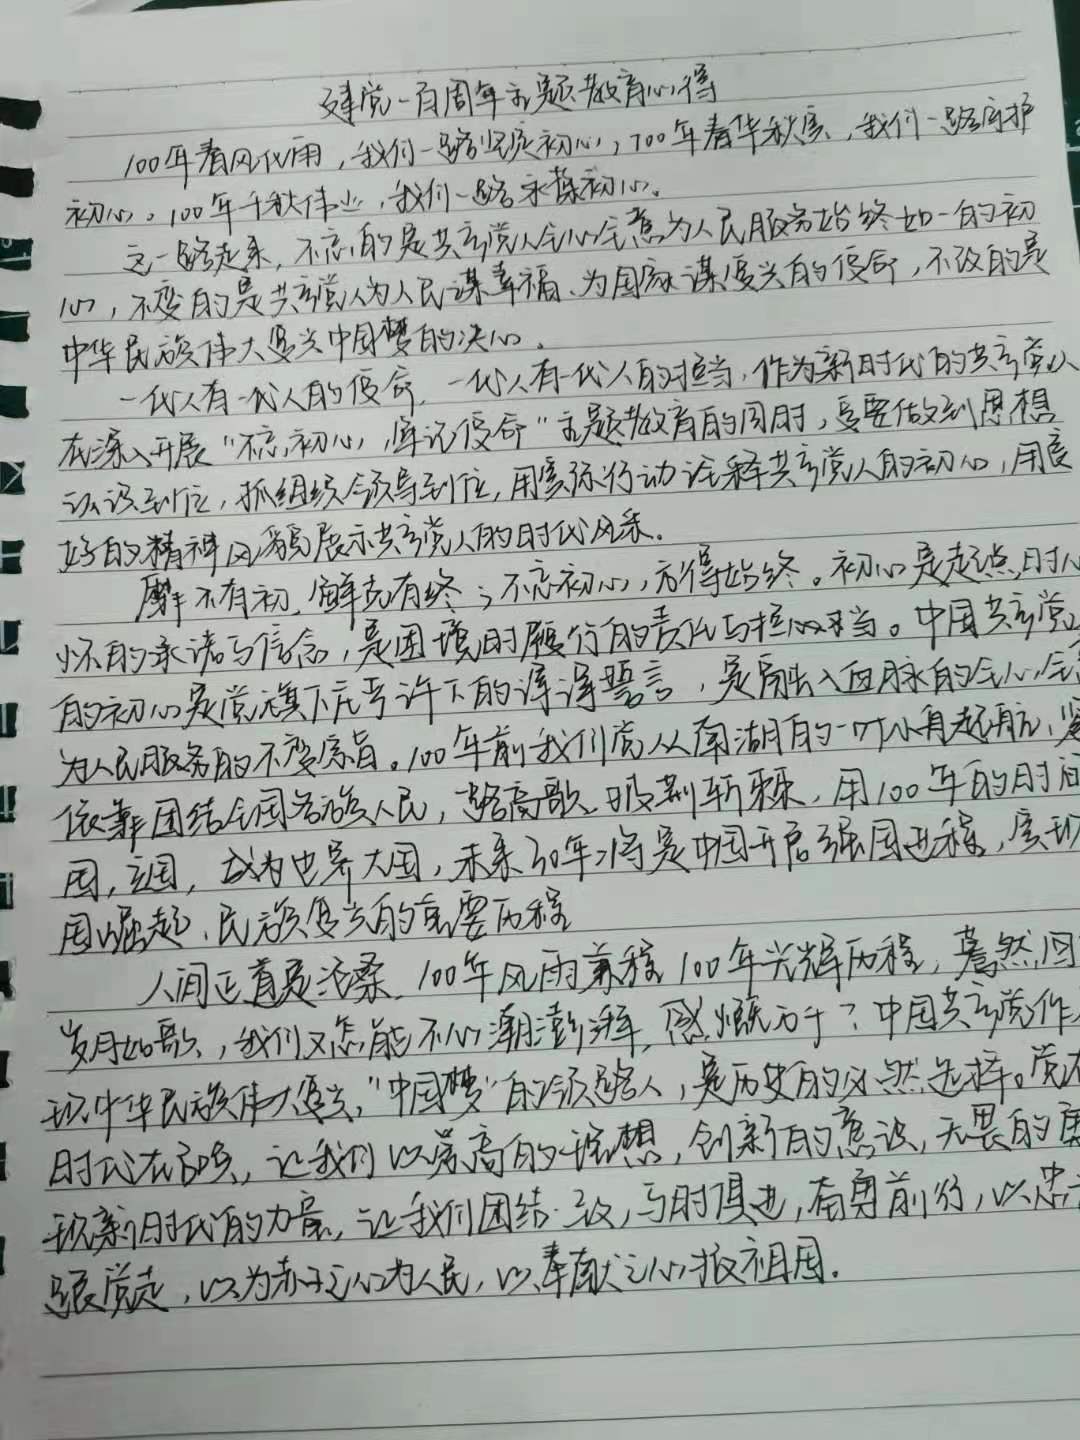 建党一百周年主题教育心得
100年春风化雨，我们一路坚定初心，100年春华秋实，我们一路守护
初心。100年千秋伟业，我们一路永葆初心。
这一路走来，不忘的是共产党人全心全意为人民服务始终如一的初
心，不变的是共产党人为人民谋幸福、为国家谋复兴的使命，不改的是
中华民族伟大复兴中国梦的决心。
一代人有一代人的使命，一代人有一代人的担当，作为新时代的共产党人
在深入开展“不忘初心，牢记使命”主题教育的同时，更要做到思想
认识到位，抓组织领导到位，用实际行动诠释共产党人的初心，用良
好的精神风貌展示共产党人的时代风采。
靡不有初，鲜克有终；不忘初心，方得始终。初心是起点时心
怀的承诺与信念，是困境时履行的责任与担当。中国共产党人
的初心是党旗下庄严许下的谆谆誓言，是融入血脉的全心全意
为人民服务的不变宗旨。100年前我们党从南湖的一叶小舟起航，紧
依靠团结全国各族人民，一路高歌、披荆斩棘，用100年的时间
国，立国，成为世界大国，未来30年将是中国开启强国进程，实现
国崛起、民族复兴的重要历程
人间正道是沧桑，100年风雨兼程100年光辉历程，蓦然回
岁月如歌，我们又怎能不心潮澎湃，感慨万千？中国共产党作
现中华民族伟大复兴，“中国梦”的领路人，是历史的必然选择。党在
时代在召唤，让我们以崇高的理想，创新的意识，无畏的勇
现新时代的力量，让我们团结一致，与时俱进，奋勇前行，以忠
跟党走，以为赤子之心为人民，以奉献之心报祖国.